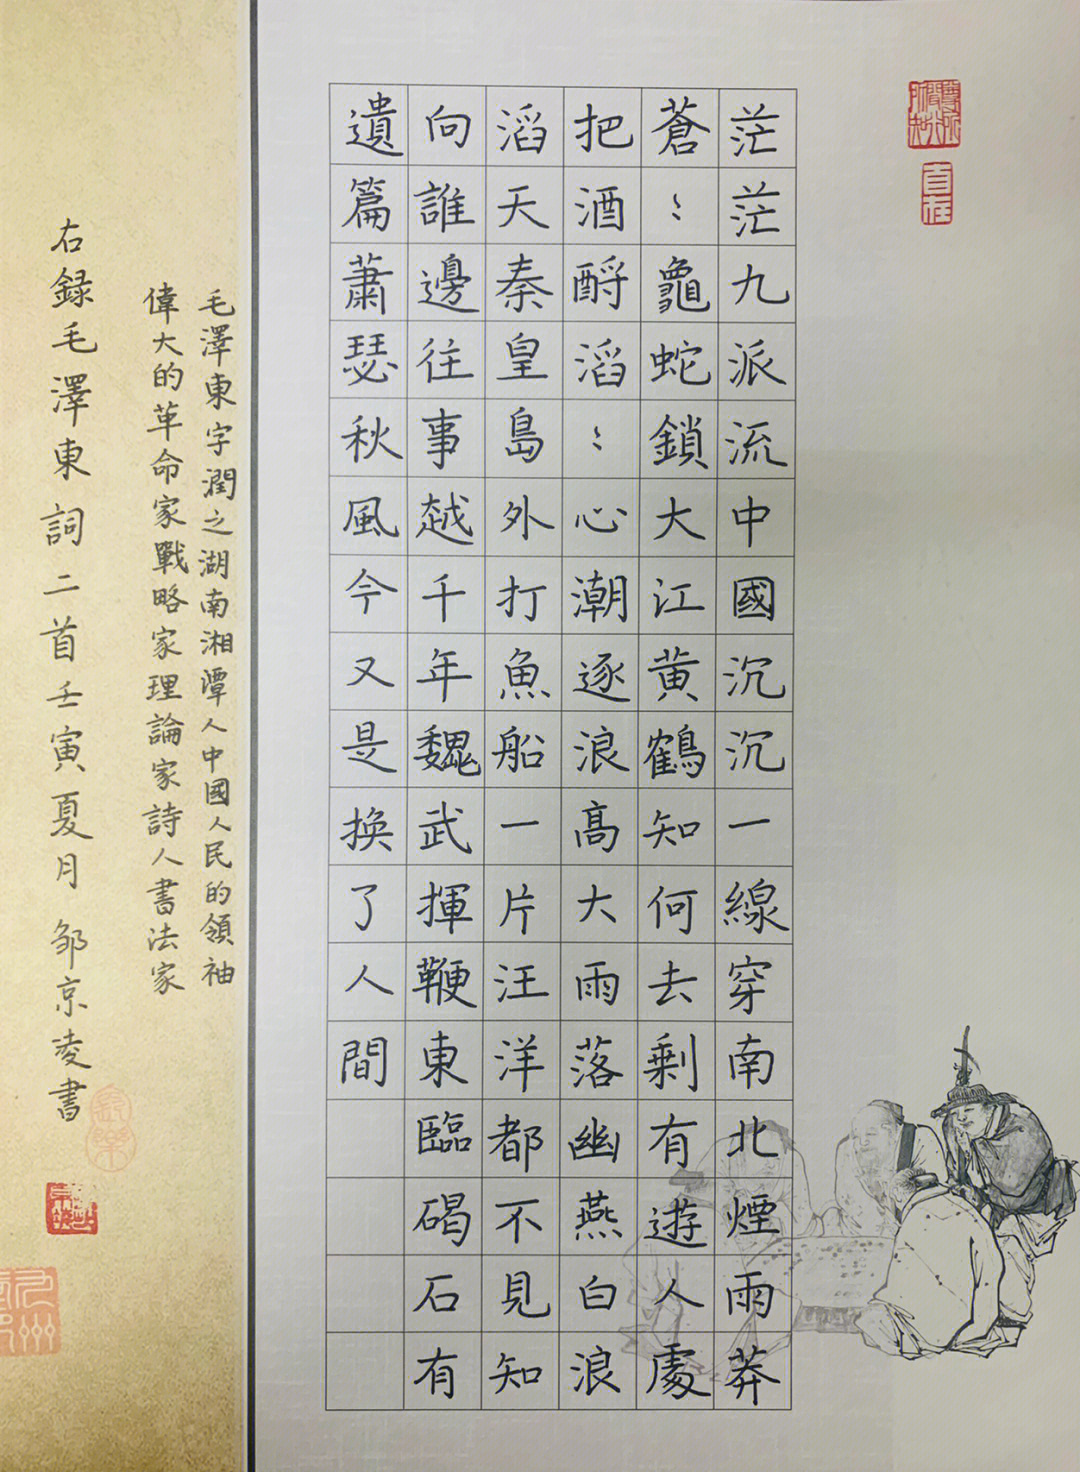 尊所聞行所知
自在
茫茫九派流中國沉沉一線穿南北煙雨莽
蒼〻龜蛇鎖大江黃鶴知何去剩有遊人處
把酒酹滔〻心潮逐浪高大雨落幽燕白浪
滔天秦皇島外打魚船一片汪洋都不見知
向誰邊往事越千年魏武揮鞭東臨碣石有
遺篇蕭瑟秋風今又是換了人間
毛澤東字潤之湖南湘潭人中國人民的領袖
偉大的革命家戰略家理論家詩人書法家
右録毛澤東詞二首壬寅夏月鄒京凌書